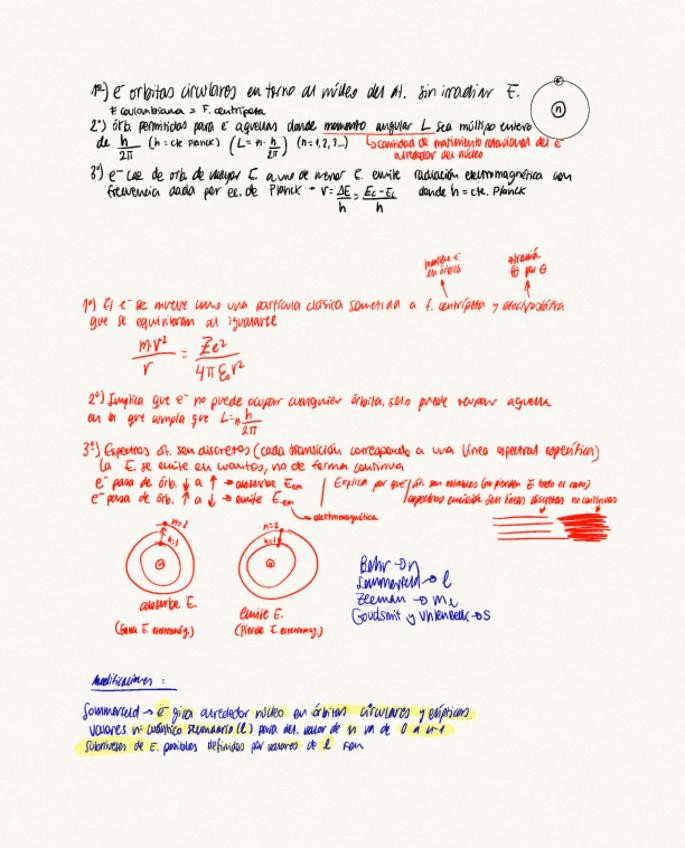 1º) e⁻ orbitas circulares en torno al núcleo del át. sin irradiar E.
F coulombiana = F. centrípeta
e⁻
n
2º) órb. permitidas para e⁻ aquellas donde momento angular L sea múltiplo entero
de h/2π (h = cte Planck) (L = n · h/2π) (n = 1, 2, 3...)
↳ cantidad de movimiento rotacional del e⁻
alrededor del núcleo
3º) e⁻ cae de orb. de mayor E. a uno de menor E. emite radiación electromagnética con
frecuencia dada por ec. de Planck → ν = ΔE/h = donde h = cte. Planck
en órbita
⊕ por ⊖
1º) El e⁻ se mueve como una partícula clásica sometida a f. centrípeta y electrostática
que se equilibran al igualarse
m·v²/r = Ze²/4πε₀r²
2º) Implica que e⁻ no puede ocupar cualquier órbita, solo puede ocupar aquella
en la que cumpla que L = n h/2π
3º) Espectros át. son discretos (cada transición corresponde a una línea espectral específica)
la E. se emite en cuantos, no de forma continua
e⁻ pasa de órb. ↓ a ↑ → absorbe E.em
e⁻ pasa de órb. ↑ a ↓ → emite E.em
→ electromagnética
Explica por qué
át. son estables (no pierden E todo el rato)
espectros emisión son líneas discretas no continuas
n=2
n=1
n=2
n=1
absorbe E.
(Gana E. electromag.)
emite E.
(Pierde E. electromag.)
Bohr → n
Sommerfeld → l
Zeeman → m
Goudsmit y Uhlenbeck → s
Modificaciones :
Sommerfeld → e⁻ gira alrededor núcleo en órbitas circulares y elípticas
valores nº cuántico secundario (l) para det. valor de n va de 0 a n-1
subniveles de E. posibles definidos por valores de l son